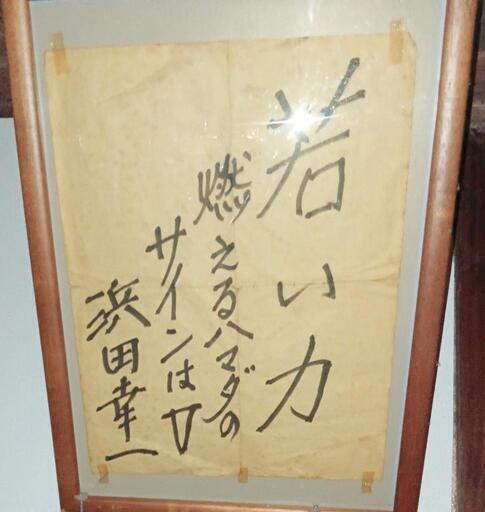 若い力
燃えるハマダの
サインはV
浜田幸一